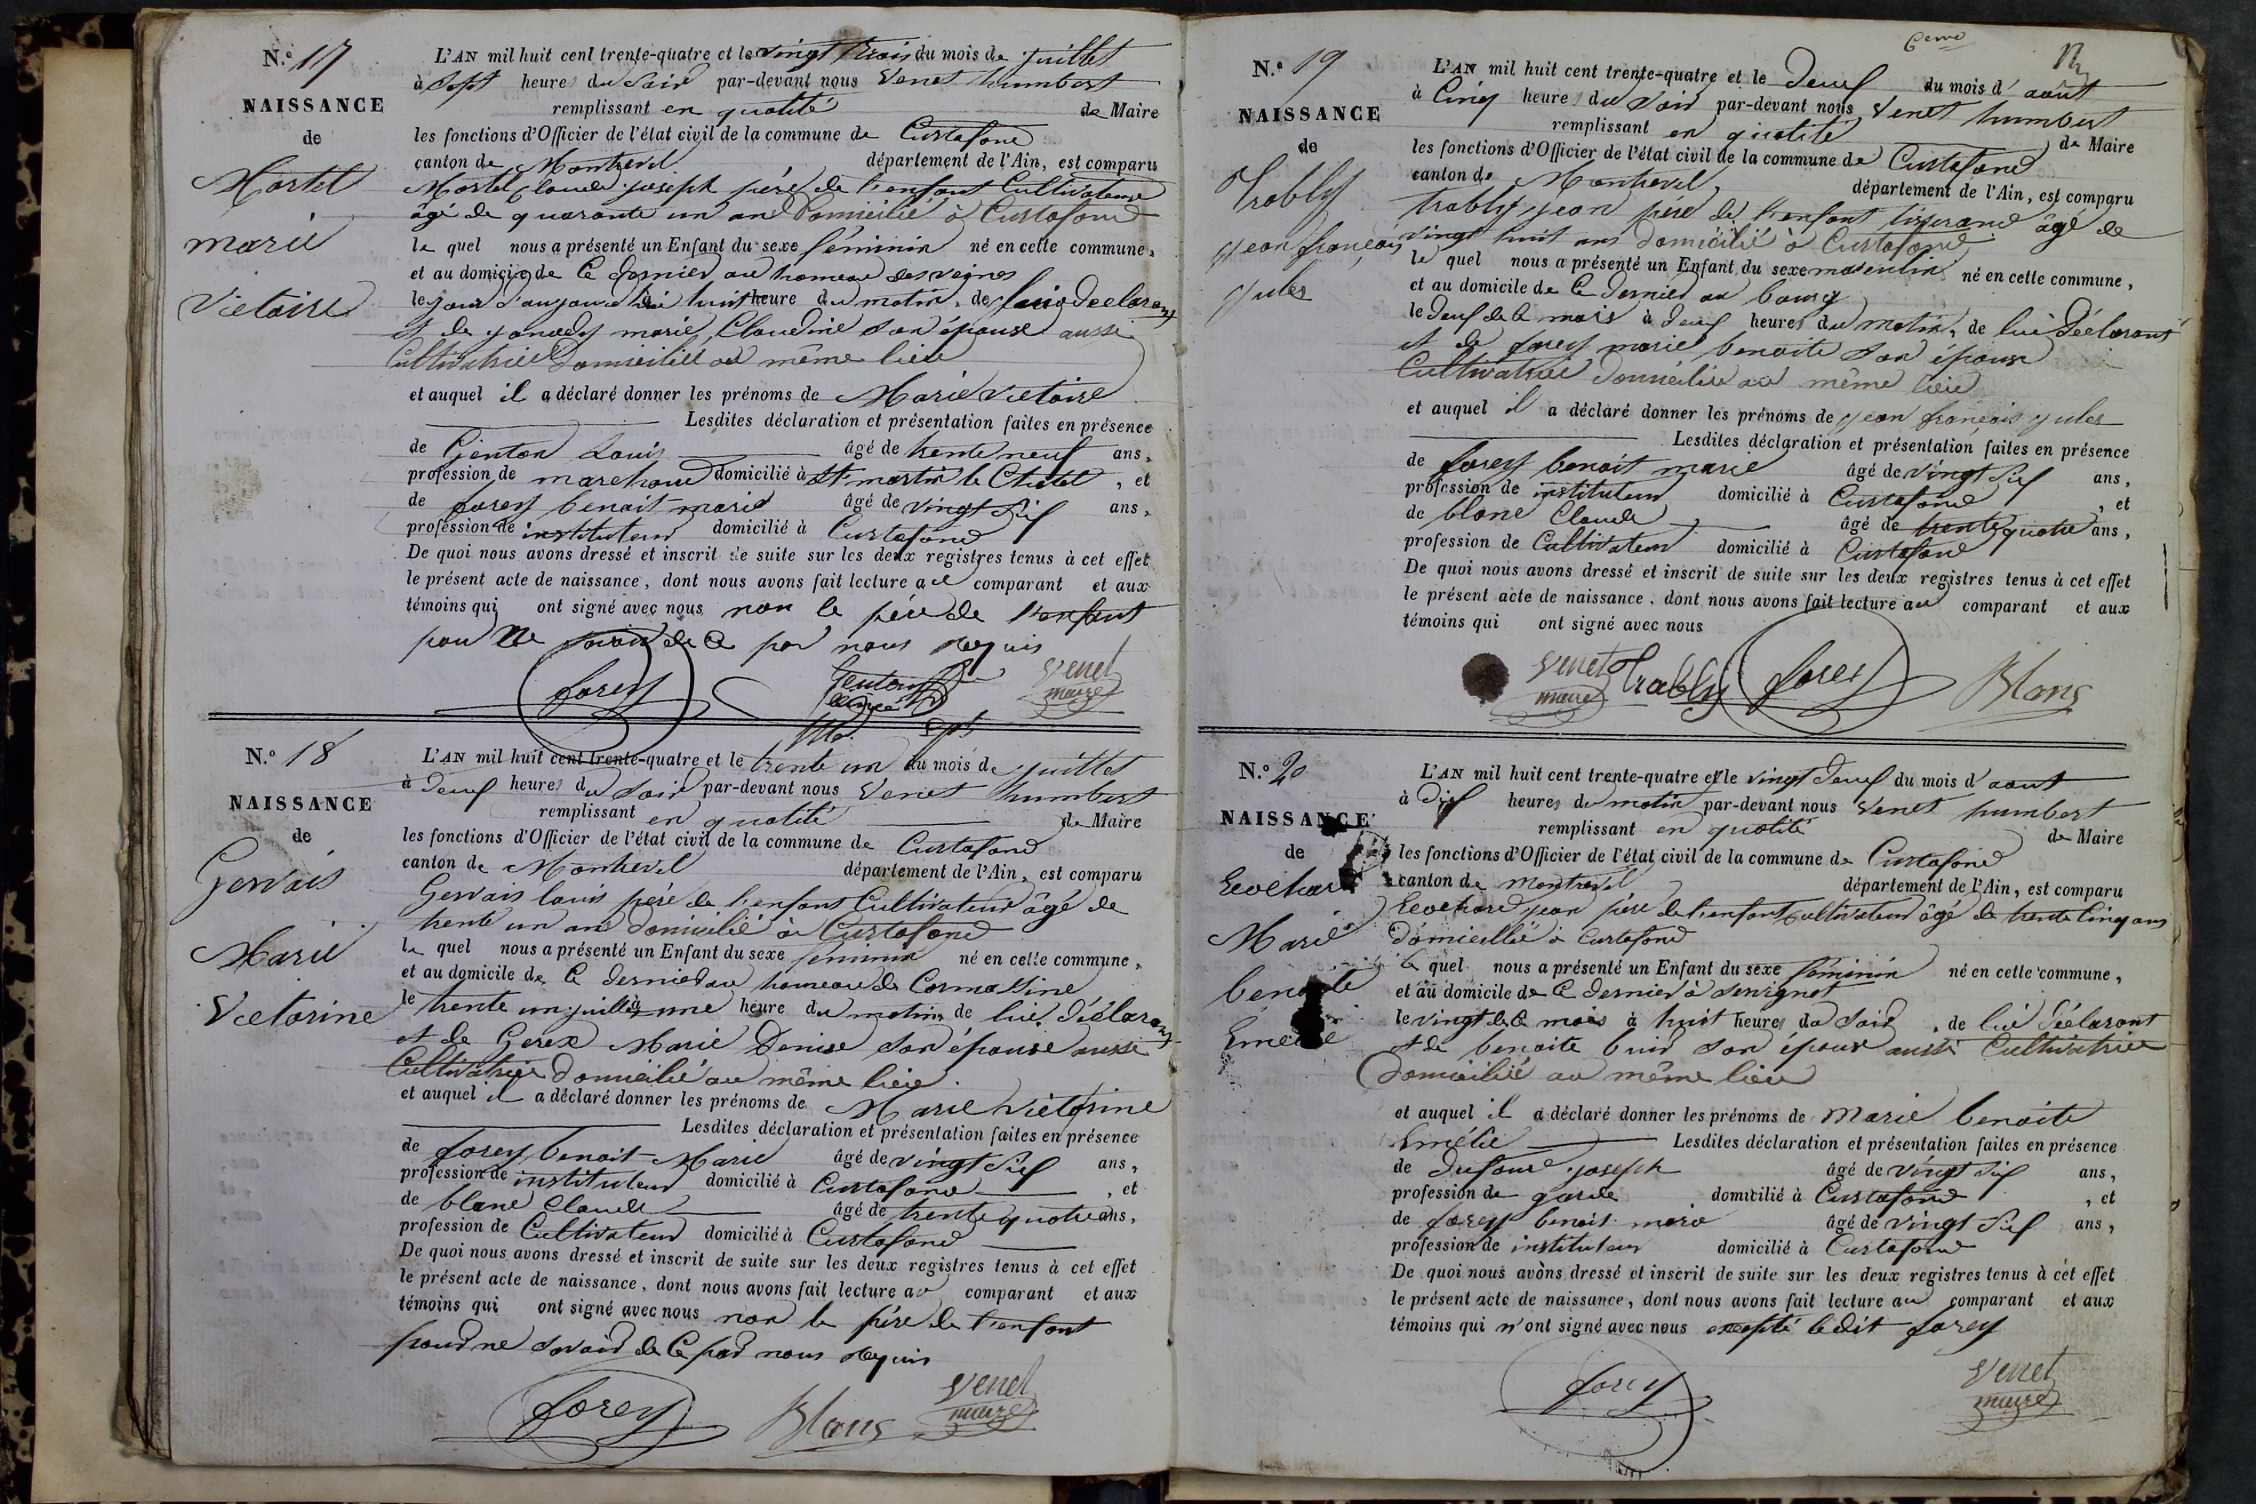 N.º 17
NAISSANCE
de
Martel
marie
Victoire
L'AN mil huit cent trente-quatre et le vingt trois du mois de juillet
à Sept heures du Soir par-devant nous Venet humbert
remplissant en qualité de Maire
les fonctions d'Officier de l'état civil de la commune de Curtafond
canton de Montrevel département de l'Ain, est comparu
Martel Claude joseph père de l'enfant Cultivateur
âgé de quarante un ans Domicilié à Curtafond
le quel nous a présenté un Enfant du sexe féminin né en cette commune,
et au domicile de Ce dernier au hameau des
le jour d'aujourd'hui à huit heure du matin, de lui déclarant
et de marie Claudine Son épouse aussi
Cultivatrice Domiciliée au même lieu
et auquel il a déclaré donner les prénoms de Marie Victoire
Lesdites déclaration et présentation faites en présence
de Genton Louis âgé de trente neuf ans,
profession de marchand domicilié à St martin le Chatel, et
de forey benoit marie âgé de vingt Six ans,
profession de instituteur domicilié à Curtafond
De quoi nous avons dressé et inscrit de suite sur les deux registres tenus à cet effet
le présent acte de naissance, dont nous avons fait lecture au comparant et aux
témoins qui ont signé avec nous non le père de l'enfant
pour Ne Savoir de Ce par nous requis
forey Genton Venet
maire
N.º 18
NAISSANCE
de
Gervais
Marie
Victorine
L'AN mil huit cent trente-quatre et le trente un du mois de juillet
à deux heures du Soir par-devant nous Venet humbert
remplissant en qualité de Maire
les fonctions d'Officier de l'état civil de la commune de Curtafond
canton de Montrevel département de l'Ain, est comparu
Gervais louis père de l'enfant Cultivateur âgé de
trente un ans domicilié à Curtafond
le quel nous a présenté un Enfant du sexe feminin né en cette commune,
et au domicile de Ce dernier au hameau de Cormassine
le trente un juillet à une heure du matin, de lui déclarant
et de Marie Denise Son épouse aussi
Cultivatrice Domicilié au même lieu
et auquel il a déclaré donner les prénoms de Marie Victorine
Lesdites déclaration et présentation faites en présence
de forey benoit Marie âgé de vingt Six ans,
profession de instituteur domicilié à Curtafond, et
de blanc Claude âgé de trente quatre ans,
profession de Cultivateur domicilié à Curtafond
De quoi nous avons dressé et inscrit de suite sur les deux registres tenus à cet effet
le présent acte de naissance, dont nous avons fait lecture au comparant et aux
témoins qui ont signé avec nous non le père de l'enfant
pour ne Savoir de Ce par nous requis
forey Blanc Venet
maire
N.º 19
NAISSANCE
de
Trably
jean françois
jules
L'AN mil huit cent trente-quatre et le Deux du mois d'août
à Cinq heures du Soir par-devant nous Venet humbert
remplissant en qualité de Maire
les fonctions d'Officier de l'état civil de la commune de Curtafond
canton de Montrevel département de l'Ain, est comparu
trably jean père de l'enfant tisserand âgé de
vingt huit ans domicilié à Curtafond
le quel nous a présenté un Enfant du sexe masculin né en cette commune,
et au domicile de Ce dernier au bourg
le deux de Ce mois à deux heures du matin, de lui déclarant
et de forey marie benoite Son épouse
Cultivatrice domiciliée au même lieu
et auquel il a déclaré donner les prénoms de jean françois jules
Lesdites déclaration et présentation faites en présence
de forey benoit marie âgé de vingt Six ans,
profession de instituteur domicilié à Curtafond, et
de blanc Claude âgé de trente quatre ans,
profession de Cultivateur domicilié à Curtafond
De quoi nous avons dressé et inscrit de suite sur les deux registres tenus à cet effet
le présent acte de naissance, dont nous avons fait lecture au comparant et aux
témoins qui ont signé avec nous
Venet Trably forey Blanc
maire
N.º 20
NAISSANCE
de
Marie
benoite
Emélie
L'AN mil huit cent trente-quatre et le vingt deux du mois d'août
à Dix heures du matin par-devant nous Venet humbert
remplissant en qualité de Maire
les fonctions d'Officier de l'état civil de la commune de Curtafond
canton de Montrevel département de l'Ain, est comparu
jean père de l'enfant Cultivateur âgé de trente Cinq ans
domicilié à Curtafond
le quel nous a présenté un Enfant du sexe féminin né en cette commune,
et au domicile de Ce dernier à
le vingt de Ce mois à huit heures du Soir, de lui déclarant
et de benoite Son épouse aussi Cultivatrice
Domicilié au même lieu
et auquel il a déclaré donner les prénoms de Marie benoite
Emélie Lesdites déclaration et présentation faites en présence
de Dufour joseph âgé de vingt Six ans,
profession de garde domicilié à Curtafond, et
de forey benoit marie âgé de vingt Six ans,
profession de instituteur domicilié à Curtafond
De quoi nous avons dressé et inscrit de suite sur les deux registres tenus à cet effet
le présent acte de naissance, dont nous avons fait lecture au comparant et aux
témoins qui n'ont signé avec nous excepté ledit forey
forey Venet
maire